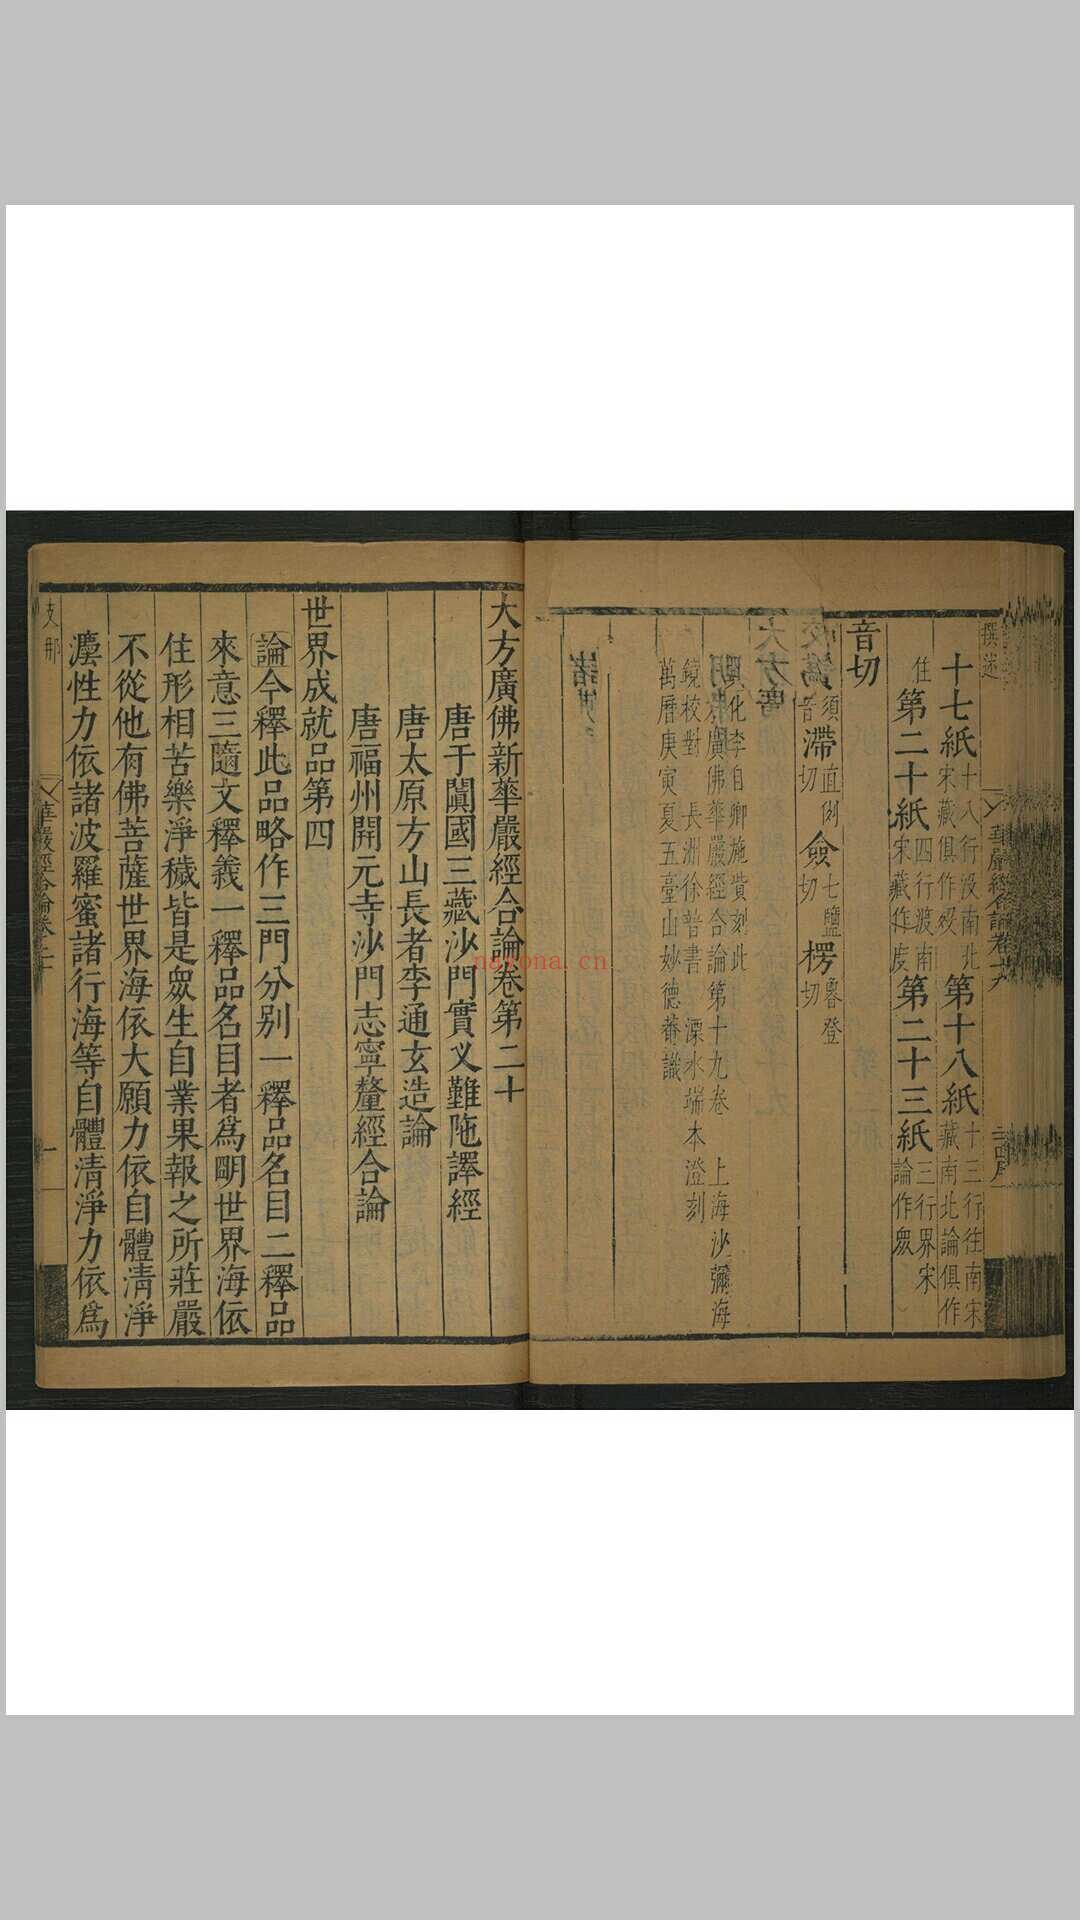 撰述
華嚴經合論卷十九
十七紙 十八行沒南北宋藏俱作歿 第十八紙 十三行往南宋藏南北論俱作
住 第二十紙 四行渡南宋藏作度 第二十三紙 三行界宋論作眾
音切
須音 滯 直例切 僉 七鹽切 楞 魯登切
興化李自卿施貲刻此
大方廣佛華嚴經合論第十九卷 上海沙彌海
鏡校對 長洲徐普書 溧水端本澄刻
萬曆庚寅夏五臺山妙德菴識
大方廣佛新華嚴經合論卷第二十
唐于闐國三藏沙門實叉難陁譯經
唐太原方山長者李通玄造論
唐福州開元寺沙門志寧釐經合論
世界成就品第四
論今釋此品略作三門分別一釋品名目二釋品
來意三隨文釋義一釋品名目者為明世界海依
住形相苦樂淨穢皆是眾生自業果報之所莊嚴
不從他有佛菩薩世界海依大願力依自體清淨
瀘性力依諸波羅蜜諸行海等自體清淨力依為
支那
華嚴經合論卷二十
一
nayona.cn